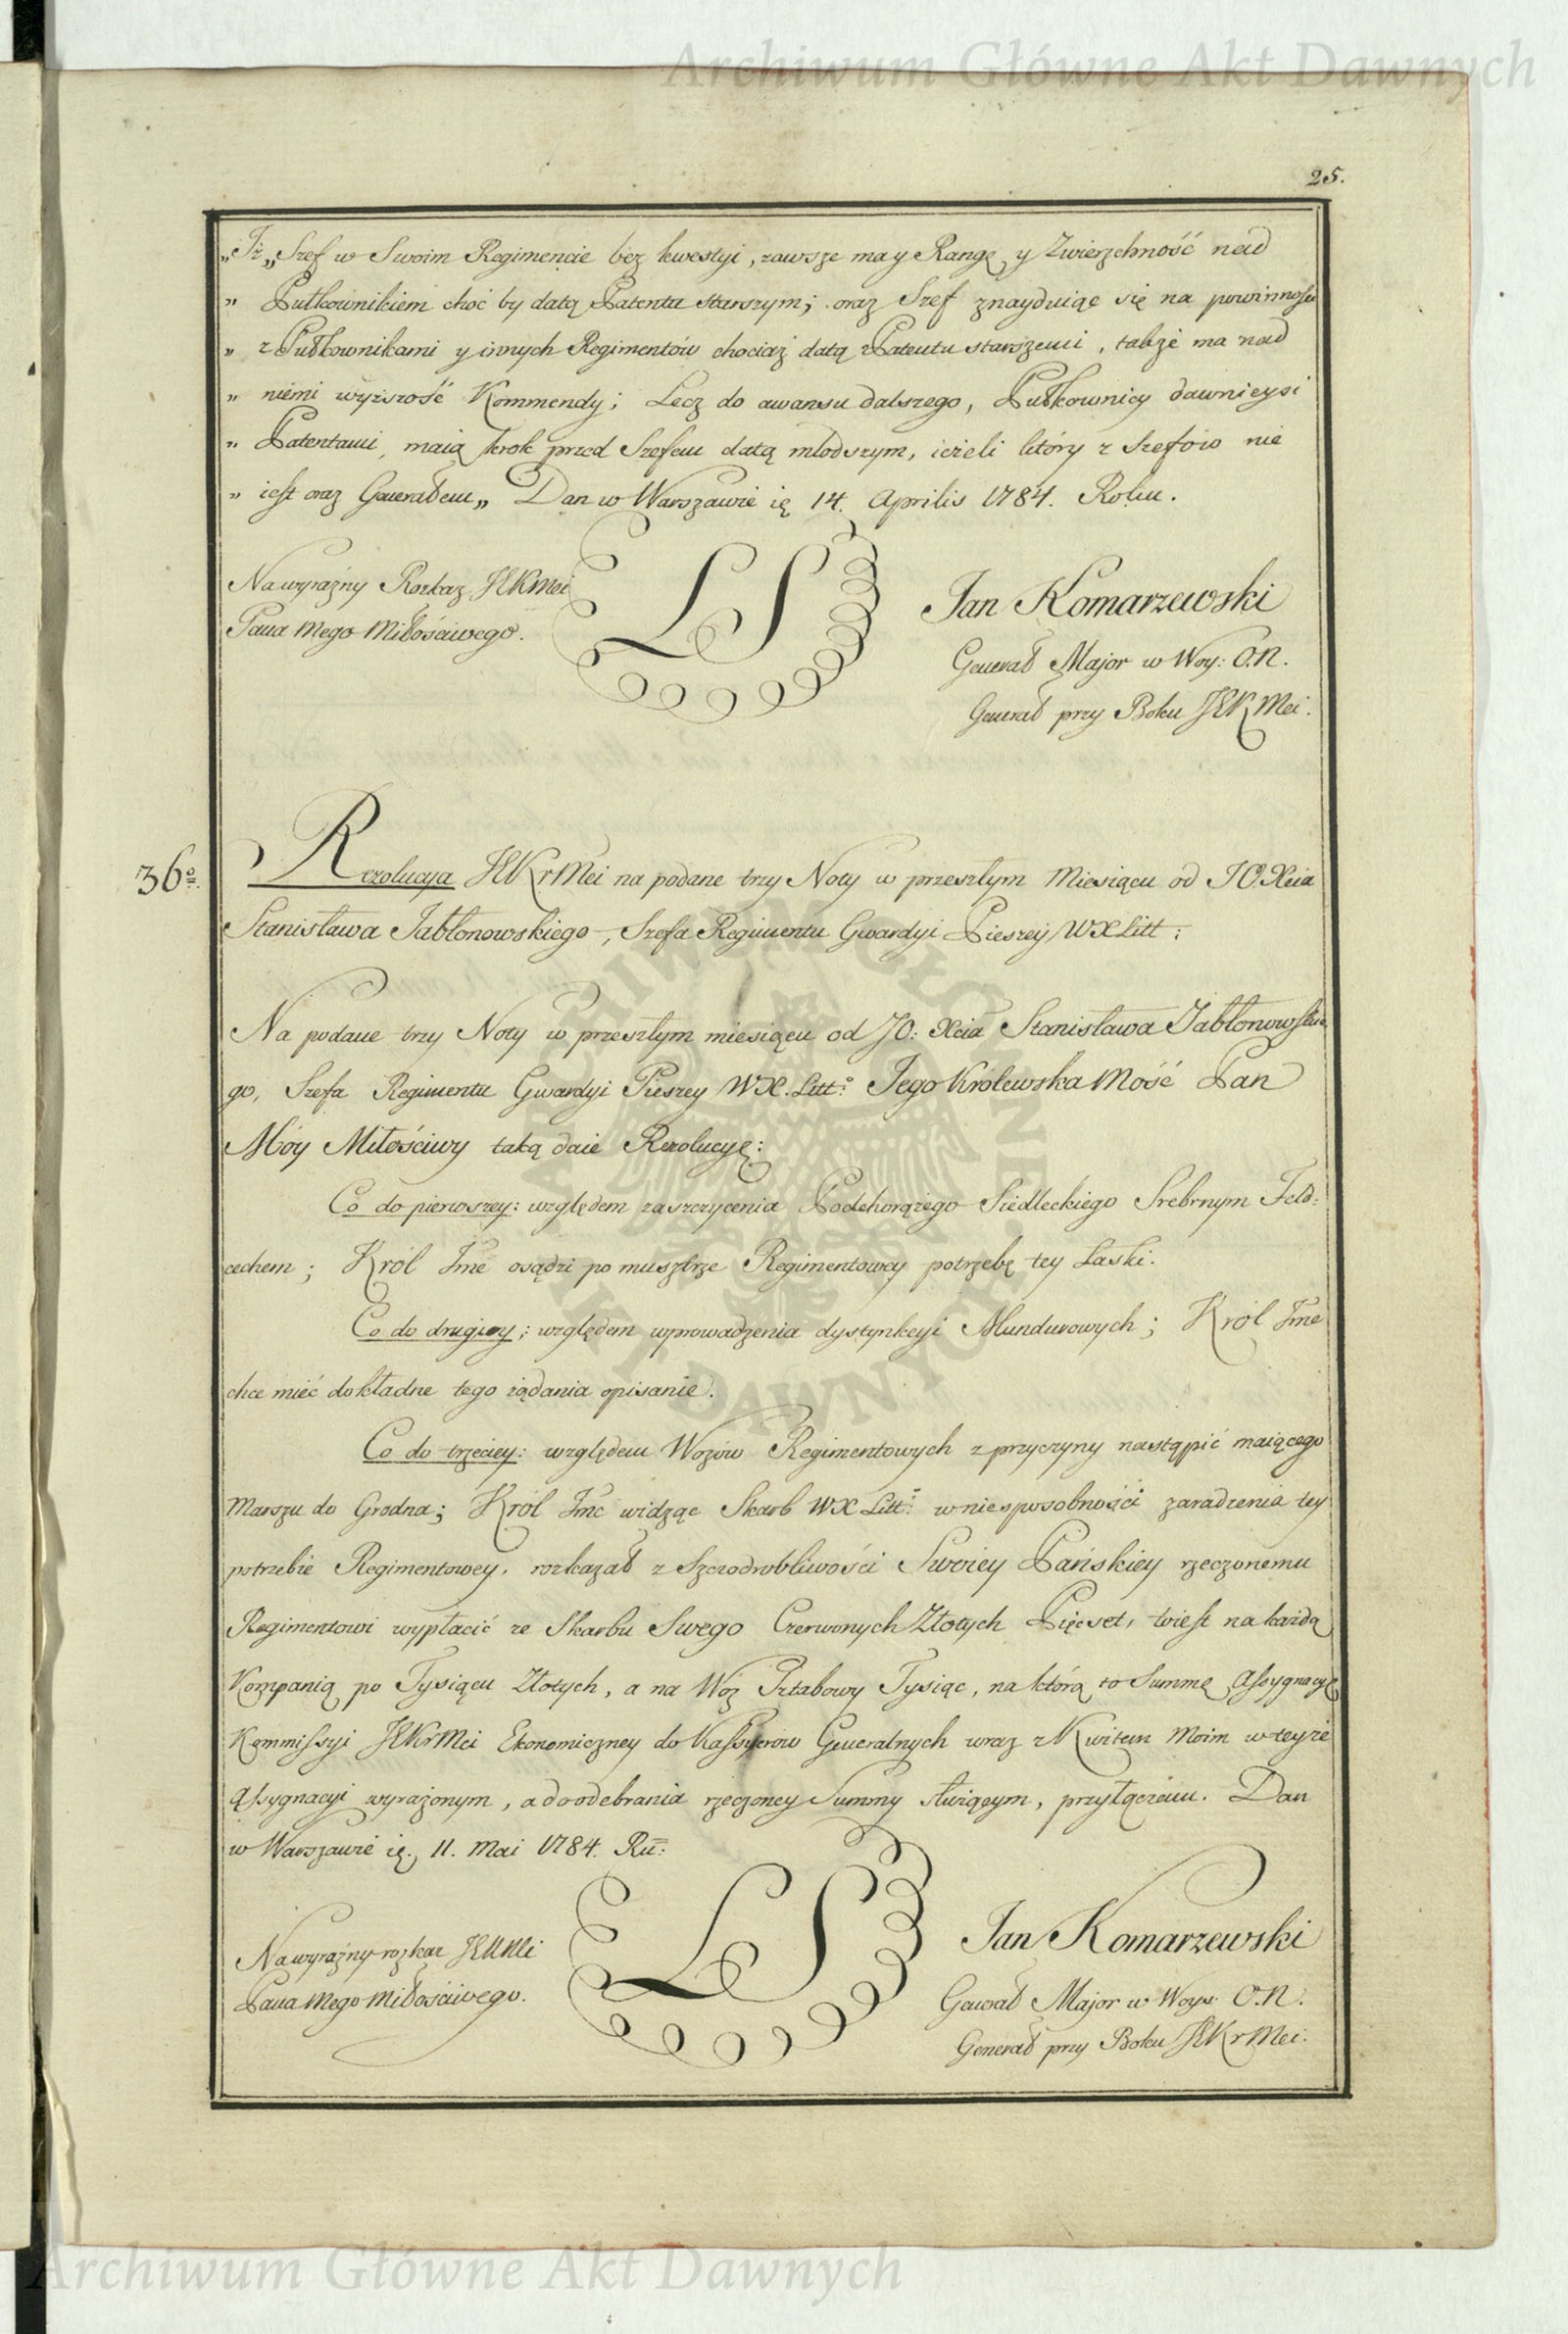 Archiwum Główne Akt Dawnych
25.
„ Iż „ Szef w Swoim Regimencie bez kwestyi, zawsze ma y Rangę y Zwierzchność nad
„ Pułkownikiem choć by datą Patentu starszym; oraz Szef znayduiąc się na powinności
„ z Pułkownikami y innych Regimentów chociaż datą Patentu starszemi, także ma nad
„ niemi wyższość Kommendy; Lecz do awansu dalszego, Pułkownicy dawnieysi
„ Patentami, maią krok przed Szefem datą młodszym, ieżeli który z Szefów nie
„ iest oraz Generałem„ Dan w Warszawie ię 14. Aprilis 1784. Roku.
Na wyraźny Rozkaz JKMci
Pana Mego Miłościwego.
LS
Jan Komarzewski
Generał Major w Woy: O.N.
Generał przy Boku JKMci.
36º
Rezolucya JKrMci na podane trzy Noty w przeszłym Miesiącu od JO. Xcia
Stanisława Jabłonowskiego, Szefa Regimentu Gwardyi Pieszey WXLitt:
Na podane trzy Noty w przeszłym miesiącu od JO: Xcia Stanisława Jabłonowskie
go, Szefa Regimentu Gwardyi Pieszey WX. Littº: Jego Królewska Mość Pan
Móy Miłościwy taką daie Rezolucyę:
Co do pierwszey: względem zaszczycenia Podchorążego Siedleckiego Srebrnym Feld:
cechem; Król Jmć osądzi po musztrze Regimentowey potrzebę tey Łaski.
Co do drugiey: względem wprowadzenia dystynkcyi Mundurowych; Król Jmć
chce mieć dokładne tego żądania opisanie.
Co do trzeciey: względem Wozów Regimentowych z przyczyny nastąpić maiącego
Marszu do Grodna; Król Jmć widząc Skarb WX Littº: w niesposobności zaradzenia tey
potrzebie Regimentowey, rozkazał z Szczodrobliwości Swoiey Pańskiey rzeczonemu
Regimentowi wypłacić ze Skarbu Swego Czerwonych Złotych Pięćset, toiest na każdą
Kompanią po Tysiącu Złotych, a na Wóz Sztabowy Tysiąc, na którą to Summę Assygnacyę
Kommissyi JKrMci Ekonomiczney do Kassyerów Generalnych wraz z Kwitem Moim w teyże
Assygnacyi wyrażonym, a do odebrania rzeczoney Summy służącym, przyłączam. Dan
w Warszawie ię. 11. Mai 1784. Ru:
Na wyraźny rozkaz JKMci
Pana Mego Miłościwego.
LS
Jan Komarzewski
Generał Major w Woys: O.N.
Generał przy Boku JKrMci.
ARCHIWUM GŁÓWNE AKT DAWNYCH
Archiwum Główne Akt Dawnych